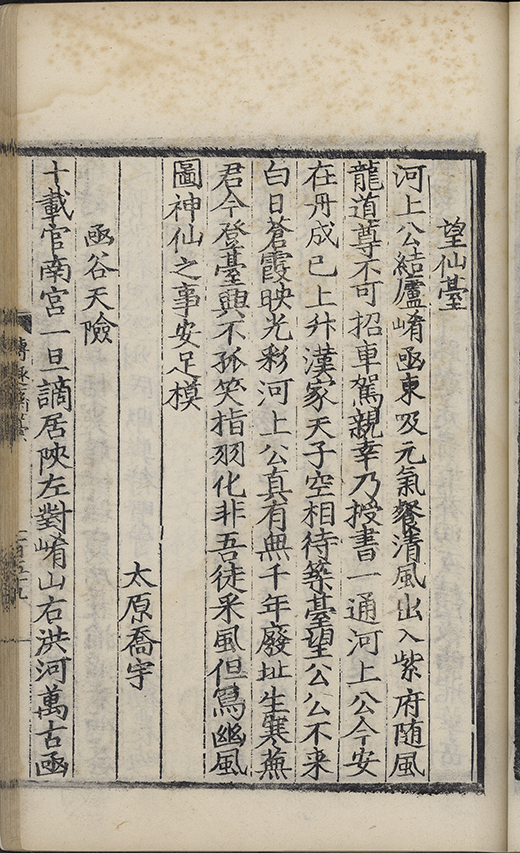 望仙臺
河上公結廬崤凾東吸元氣餐清風出入紫府随風
龍道尊不可招車駕親幸乃授書一通河上公今安
在丹成已上升漢家天子空相待築臺望公公不来
白日蒼霞映光彩河上公真有無千年廢址生寒蕪
君今登臺興不孤笑指羽化非吾徒采風但寫豳風
圖神仙之事安足模
太原喬宇
凾谷天險
十載官南宫一旦謫居陜左對崤山右洪河萬古凾